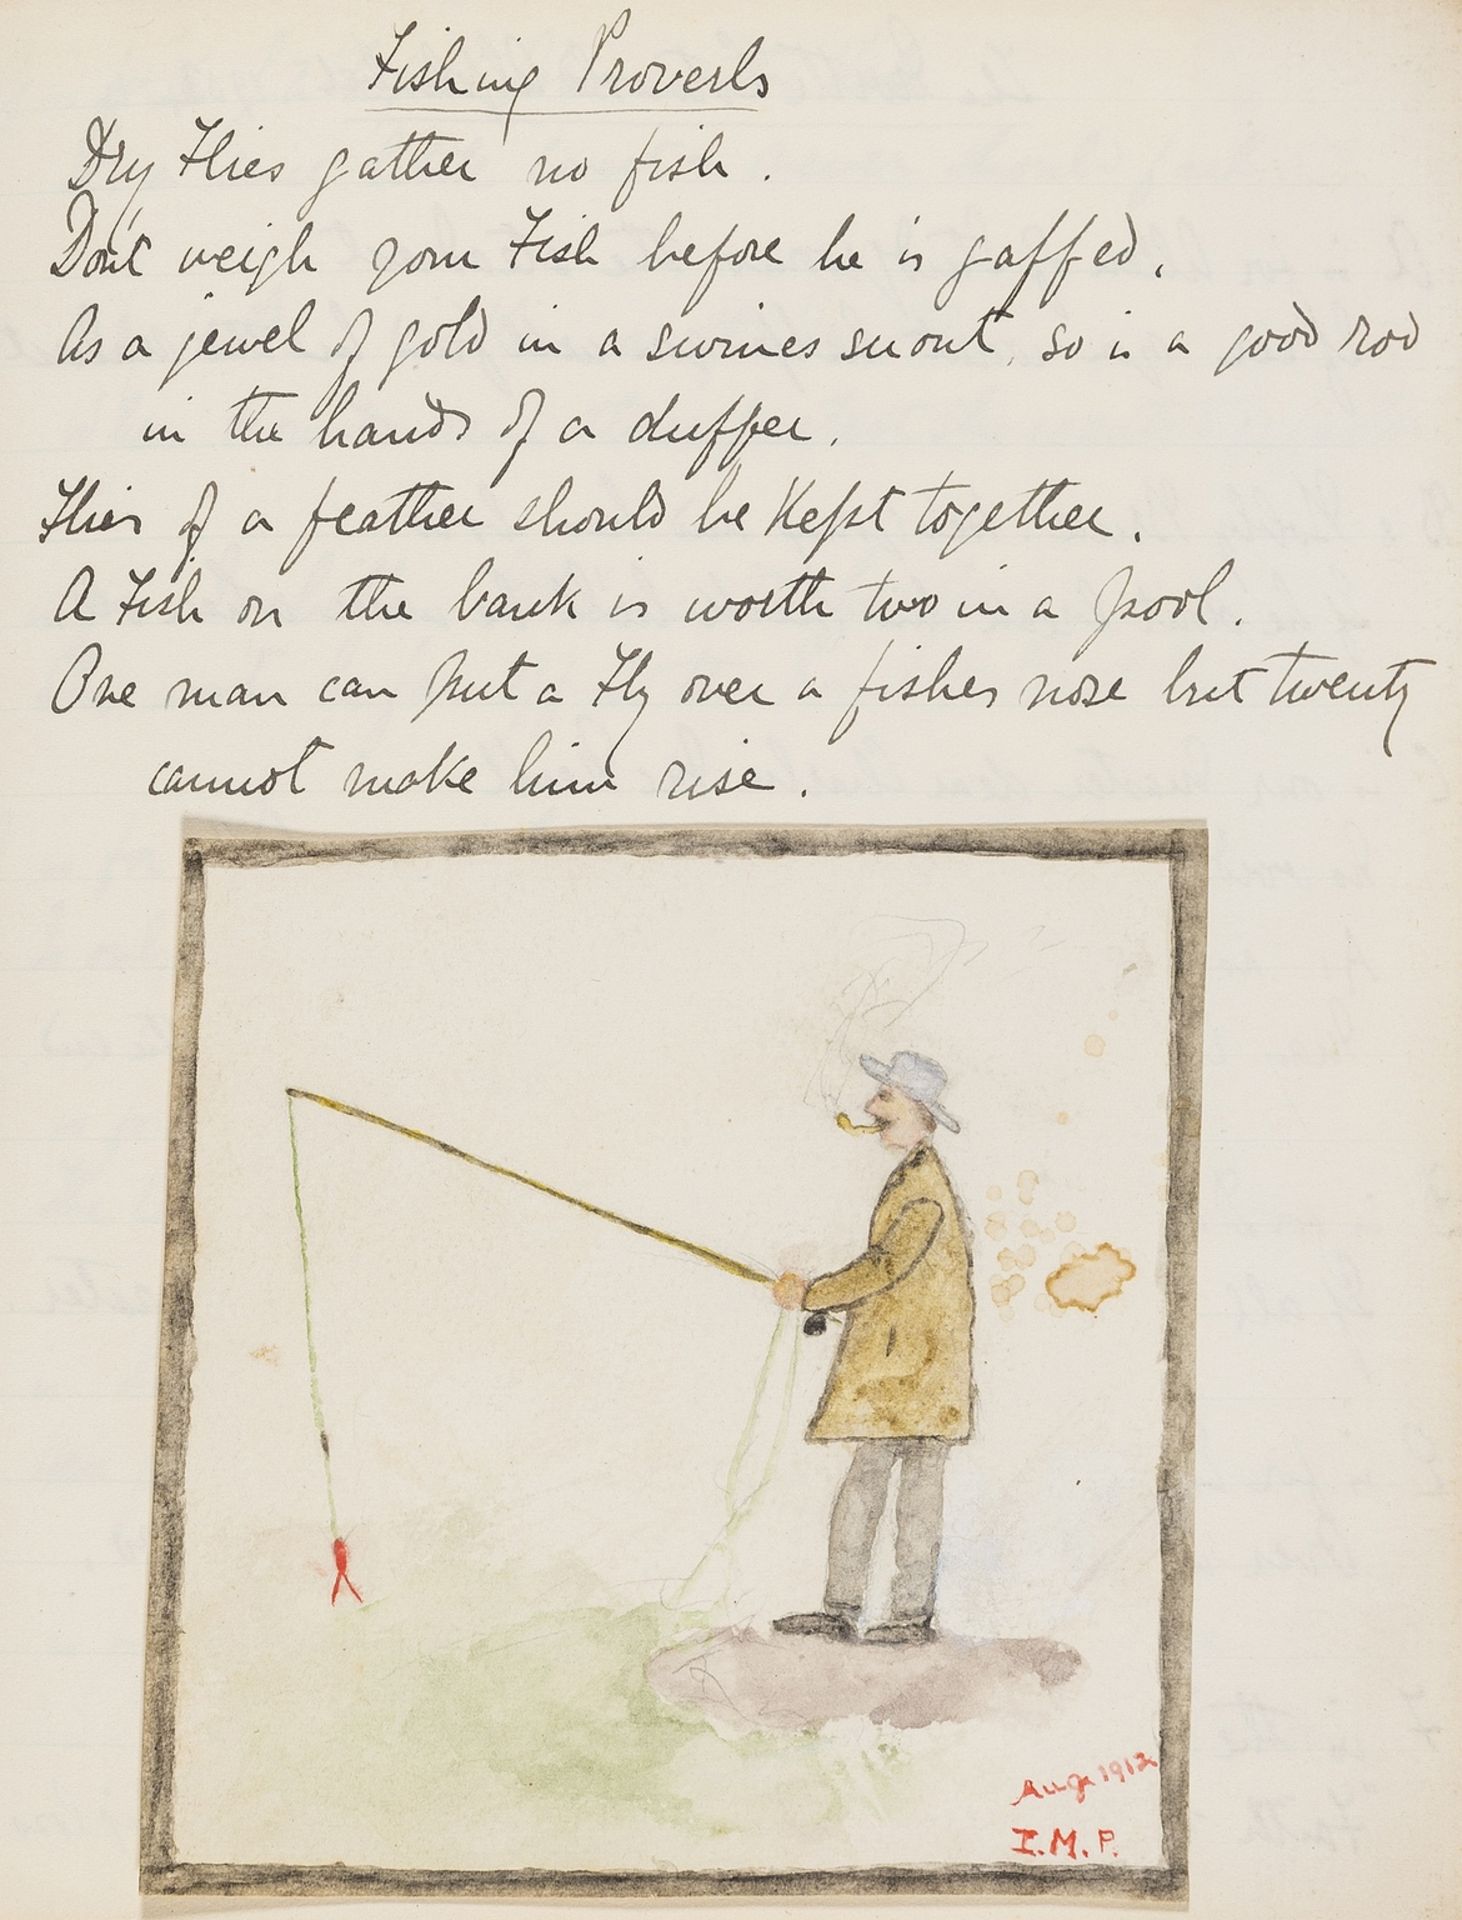 Fishing Proverbs
Dry Flies gather no fish.
Don't weigh your Fish before he is gaffed.
As a jewel of gold in a swines snout, so is a good rod
in the hands of a duffer.
Flies of a feather should be Kept together.
A Fish on the bank is worth two in a pool.
One man can put a Fly over a fishes nose but twenty
cannot make him rise.
Aug 1912
I.M.P.